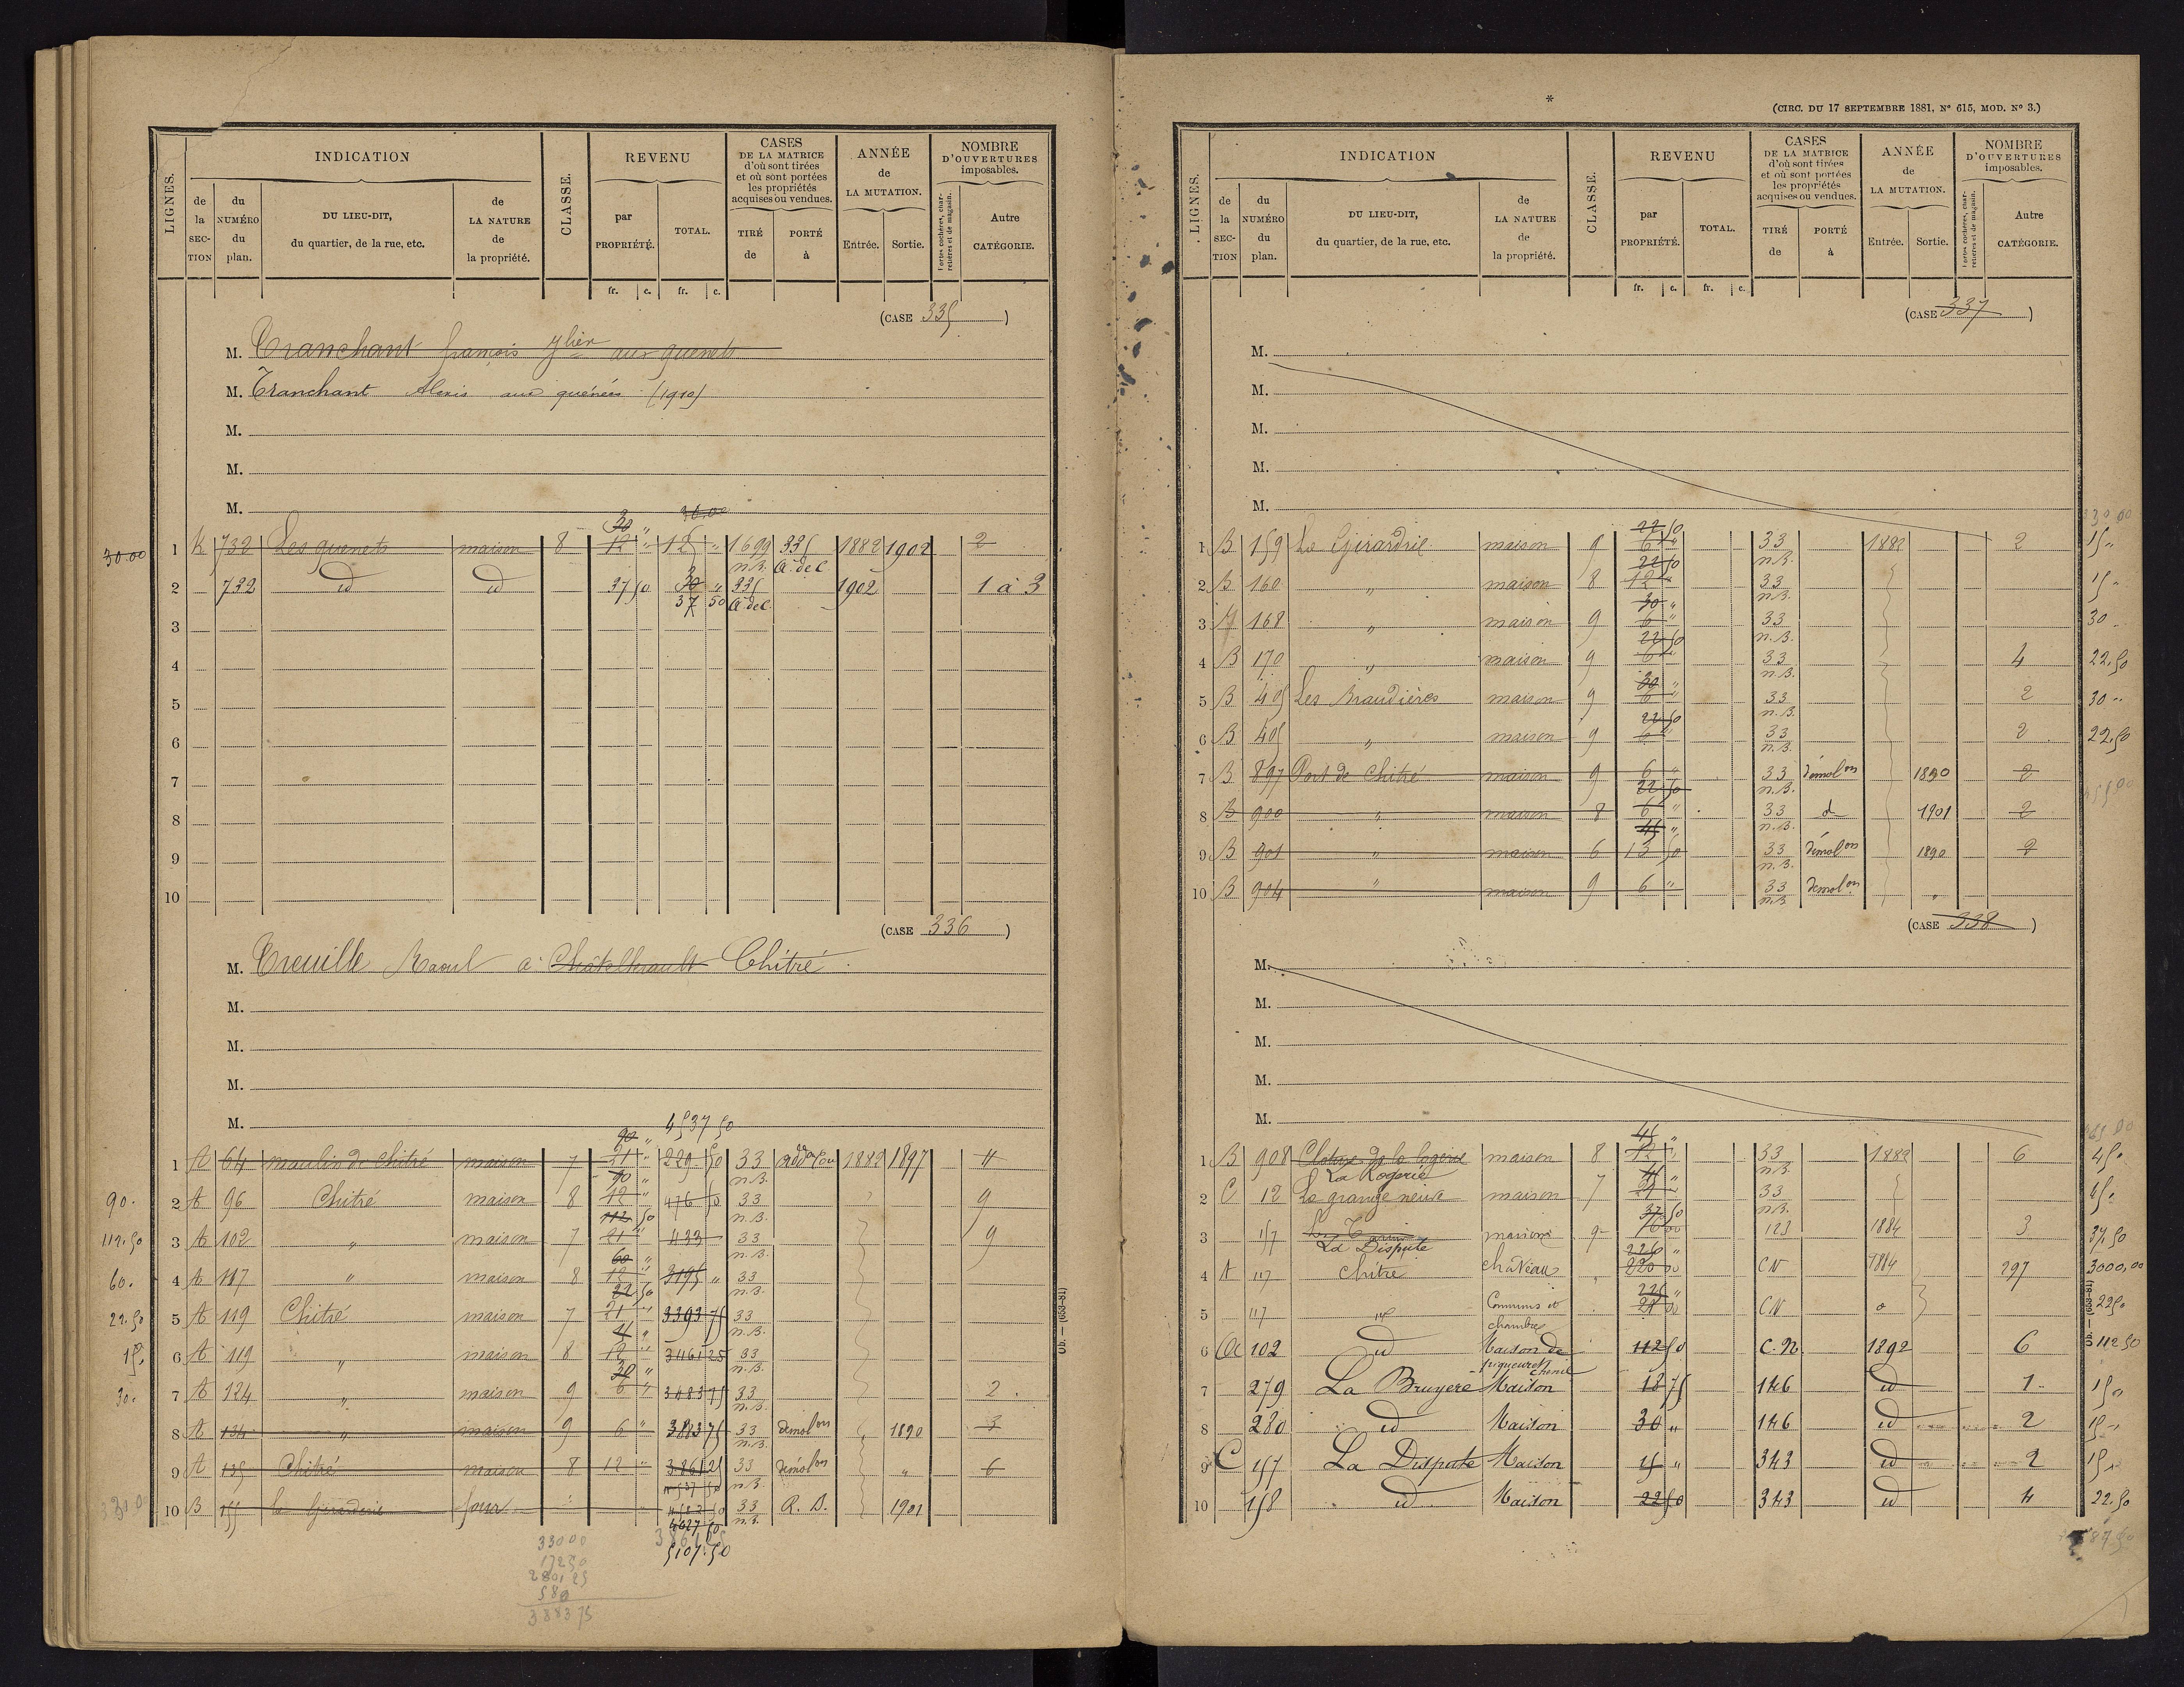 LIGNES.
INDICATION
CLASSE.
REVENU
CASES
DE LA MATRICE
d'où sont tirées
et où sont portées
les propriétés
acquises ou vendues.
ANNÉE
de
LA MUTATION.
NOMBRE
D'OUVERTURES
imposables.
de la SECTION
du NUMÉRO du plan.
DU LIEU-DIT,
du quartier, de la rue, etc.
de LA NATURE de la propriété.
par PROPRIÉTÉ.
TOTAL.
TIRÉ de
PORTÉ à
Entrée.
Sortie.
Portes cochères, charretières et de magasin.
Autre CATÉGORIE.
fr. c. fr. c.
(CASE 335)
M. Tranchant françois aux quenets
M. Tranchant Alexis aux (1910)
M.
M.
M.
30 " 36.00
30 00 1 K 732 Les quenets maison 8 12 " 12 " 1699 335 1882 1902 2
n.B. a. del
2 732 id id 37 50 30 " 335 1902 1 à 3
37 50 a. del
3
4
5
6
7
8
9
10
(CASE 336)
M. Treuille Raoul à Châtellerault Chitré
M.
M.
M.
M. 4537 50
90 "
1 A 64 moulin de Chitré maison 7 21 " 220 50 33 1882 1897 4
90 " n.B.
90 " 2 A 96 Chitré maison 8 12 " 476 50 33 9
112 50 n.B.
112.50 3 A 102 " maison 7 21 " 433 33 9
60 " n.B.
60 " 4 A 117 " maison 8 12 " 3195 " 33
22 50 n.B.
22.50 5 A 119 Chitré maison 7 21 " 3393 75 33
15 " n.B.
15 " 6 A 119 " maison 8 12 " 3461 25 33
30 " n.B.
30 " 7 A 124 " maison 9 6 " 3483 75 33 2
n.B.
8 A 134 " maison 9 6 " 3883 75 33 démolon 1890 3
n.B.
9 A 135 Chitré maison 8 12 " 3861 25 33 démolon " 6
4537 50 n.B.
10 B 155 la Girarderie four 33 R. B. 1901
4627 50 n.B.
5107.50
330 00
172 50
2801 25
580
3883 75
Ob. — (653-81)
*
(CIRC. DU 17 SEPTEMBRE 1881, N° 615, MOD. N° 3.)
LIGNES.
INDICATION
CLASSE.
REVENU
CASES
DE LA MATRICE
d'où sont tirées
et où sont portées
les propriétés
acquises ou vendues.
ANNÉE
de
LA MUTATION.
NOMBRE
D'OUVERTURES
imposables.
de la SECTION
du NUMÉRO du plan.
DU LIEU-DIT,
du quartier, de la rue, etc.
de LA NATURE de la propriété.
par PROPRIÉTÉ.
TOTAL.
TIRÉ de
PORTÉ à
Entrée.
Sortie.
Portes cochères, charretières et de magasin.
Autre CATÉGORIE.
fr. c. fr. c.
(CASE 337)
M.
M.
M.
M.
M.
22 50 330 00
1 B 159 La Girardrie maison 9 6 " 33 1882 2 15 "
22 50 n.B.
2 B 160 " maison 8 12 " 33 15 "
30 " n.B.
3 168 " maison 9 6 " 33 30
22 50 n.B.
4 B 170 " maison 9 6 " 33 4 22.50
30 " n.B.
5 B 405 Les Braudières maison 9 6 " 33 2 30 "
22 50 n.B.
6 B 405 " maison 9 6 " 33 2 22.50
n.B.
7 B 897 Port de Chitré maison 9 6 " 33 démolon 1890 2
22 50 n.B.
8 B 900 " maison 8 6 " 33 d 1901 2
45 " n.B.
9 B 901 " maison 6 13 50 33 démolon 1890 2
n.B.
10 B 904 " maison 9 6 " 33 démolon "
n.B.
(CASE 338)
M.
M.
M.
M.
M.
45 "
1 B 908 maison 8 12 " 33 1882 6 45 "
La Rogerie 45 " n.B.
2 C 12 La grange neuve maison 7 21 " 33 45 "
37 50 n.B.
3 157 La Dispute maison 9 123 1884 3 37.50
2250 "
4 A 117 Chitré château 220 00 CN 1884 297 3000,00
225 "
5 117 id Communs et chambres CN 225 "
6 102 id Maison de piqueur et chenil 112 50 C.N. 1892 6 112 50
7 279 La Bruyere Maison 18 75 146 id 1 15 "
8 280 id Maison 30 " 146 id 2 15 "
9 C 157 La Dispute Maison 15 " 343 id 2 15 "
10 158 id Maison 22 50 343 id 4 22.50
Ob. — (653-81)